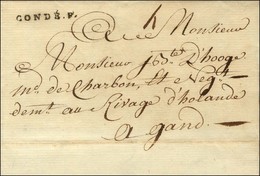 CONDÉ.F.
A Monsieur
Monsieur D'hooge
md. de Charbon, et Negt
demt. au Rivage d'holande
a gand